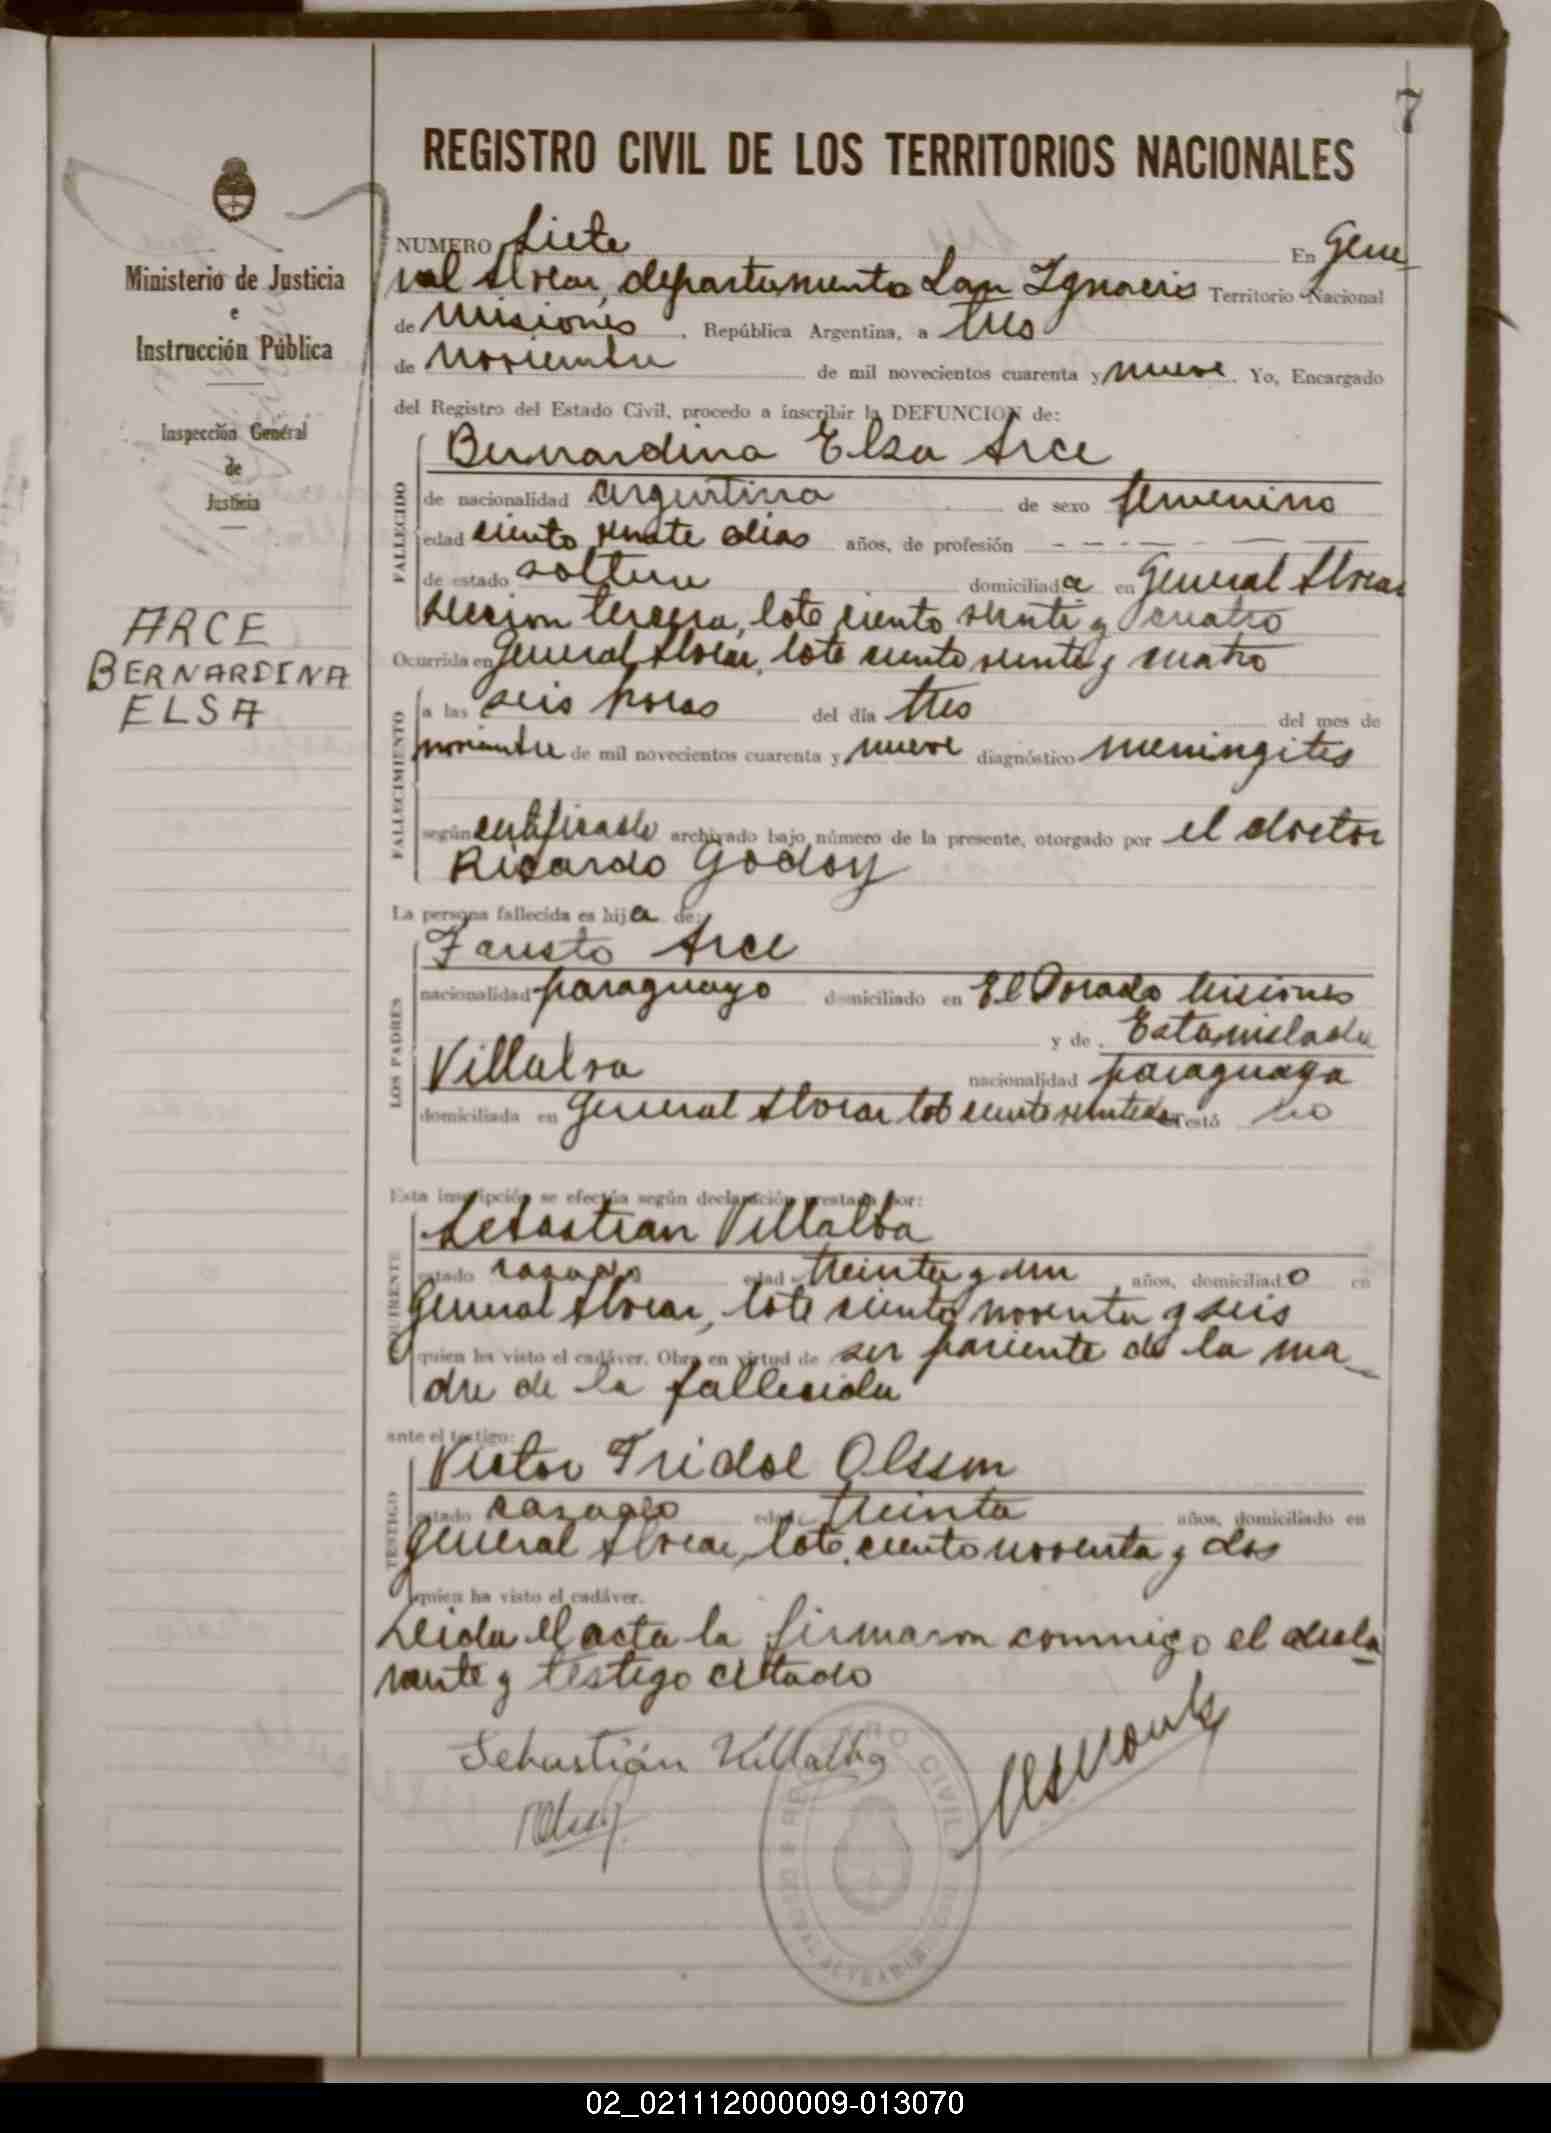 7
REGISTRO CIVIL DE LOS TERRITORIOS NACIONALES
Ministerio de Justicia
e
Instrucción Pública
Inspección General
de
Justicia
ARCE
BERNARDINA
ELSA
NUMERO Siete En Gene-
ral Alvear, departamento San Ignacio Territorio Nacional
de Misiones, República Argentina, a tres
de noviembre de mil novecientos cuarenta y nueve. Yo, Encargado
del Registro del Estado Civil, procedo a inscribir la DEFUNCION de:
FALLECIDO
Bernardina Elsa Arce
de nacionalidad argentina de sexo femenino
edad ciento veinte dias años, de profesión - - - - - -
de estado soltera domiciliada en General Alvear
Seccion tercera, lote ciento veinte y cuatro
Ocurrida en General Alvear, lote ciento veinte y cuatro
FALLECIMIENTO
a las seis horas del día tres del mes de
noviembre de mil novecientos cuarenta y nueve diagnóstico meningites
según certificado archivado bajo número de la presente, otorgado por el doctor
Ricardo Godoy
La persona fallecida es hija de:
LOS PADRES
Fausto Arce
nacionalidad paraguayo domiciliado en El Dorado Misiones
y de Estanislada
Villalva
nacionalidad paraguaya
domiciliada en General Alvear lote ciento testó no
Esta inscripción se efectúa según declaración prestada por:
Sebastian Villalba
estado casado edad treinta y un años, domiciliado en
General Alvear, lote ciento noventa y seis
quien ha visto el cadáver. Obra en virtud de ser pariente de la ma-
dre de la fallecida
ante el testigo:
TESTIGO
Victor Fridol Olsson
estado casado edad treinta años, domiciliado en
General Alvear, lote ciento noventa y dos
quien ha visto el cadáver.
Leida el acta la firmaron conmigo el decla-
rante y testigo citado
Sebastián Villalba
REGISTRO CIVIL
GENERAL ALVEAR
02_021112000009-013070